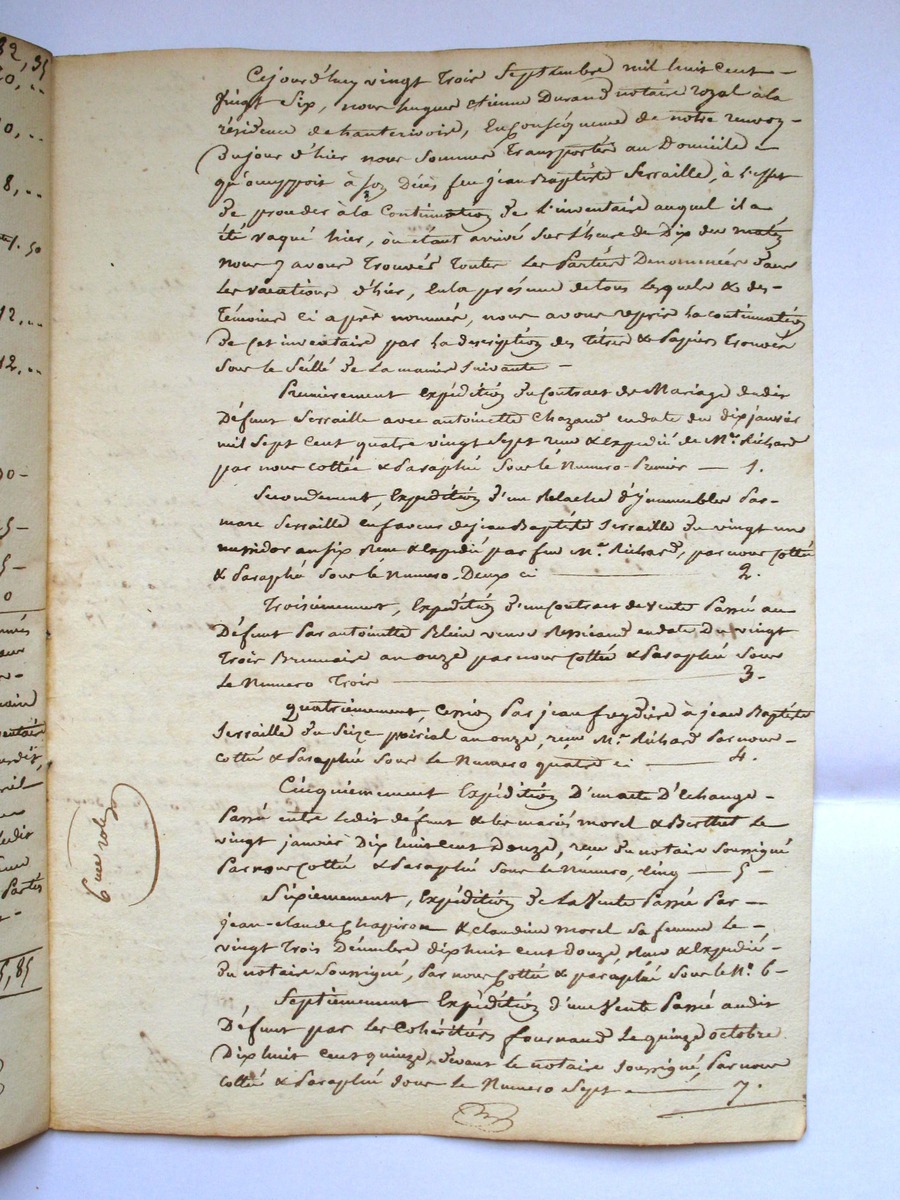 82,35
20,..
0,..
8,..
50
12,..
12,..
00-
5-
5-
0
5,85
6me role
Cejourd'huy vingt Trois Septembre mil huit Cent -
Vingt Six, nous hugues etienne Durand notaire royal à la
résidence de hauterivoire, En Conséquence de notre renvoy -
Du jour d'hier nous Sommes Transportés au Domicile -
qu'occuppoit à Son Décès feu jean Baptiste Serraille, à l'effet
de procéder à la Continuation de l'inventaire auquel il a
été vaqué hier, où étant arrivé Sur l'heure de Dix du matin
nous y avons Trouvés Toutes Les Parties Dénommées dans
Les vacations d'hier, En la présence de tous Lesquels & des -
Témoins Ci après nommés, nous avons repris La continuation
De cet inventaire par La description des Titres & Papiers Trouvés
Sous le Scéllé De La maniere Suivante -
Premierement Expédition du Contract de Mariage dudit
Défunt Serraille avec antoinette Chazaud en date du dix janvier
mil Sept Cent quatre vingt Sept reçu & Expédié de Me. Richard
par nous Cottée & Paraphée Sous le Numero Premier — 1.
Secondement, Expédition d'un Relaché d'Jmmeubles Par -
marc Serraille en faveur de jean Baptiste Serraille du vingt un
messidor an six Reçu & Expédié par feu Me. Richard, par nous Cotté
& Paraphé Sous le Numero Deux ci — 2.
Troisièmement, Expédition d'un Contract de vente Passé au
Défunt Par antoinette Blein veuve en date Du vingt
Trois Brumaire an onze par nous Cottée & Paraphée Sous
Le Numero Trois — 3.
Quatrièmement Cession Par jean freydière à jean Baptiste
Serraille du Seize an onze, reçu Me. Richard Par nous -
Cotté & Paraphé Sous le Numero quatre ci — 4.
Cinquiemement Expédition D'un acte D'Echange -
Passé entre Ledit défunt & les mariés morel & Berthet Le
vingt janvier Dix huit Cent Douze, reçu du notaire Soussigné
Par nous Cotté & Paraphé Sous le Numero, Cinq — 5 -
Sixiemement, Expédition de La Vente Passée Par -
jean-claude Chapiron & claudine morel Sa femme Le -
vingt Trois Décembre dix huit cent douze, Reçu & Expédié -
du notaire Soussigné, Par nous Cotté & paraphé Sous le No. 6 -
Septièmement Expédition d'une Vente Passé audit
Défunt par Les Cohéritiers fournand Le quinze octobre
Dix huit Cent quinze, devant le notaire Soussigné, Par nous
Cotté & Paraphé Sous Le Numero Sept — 7.